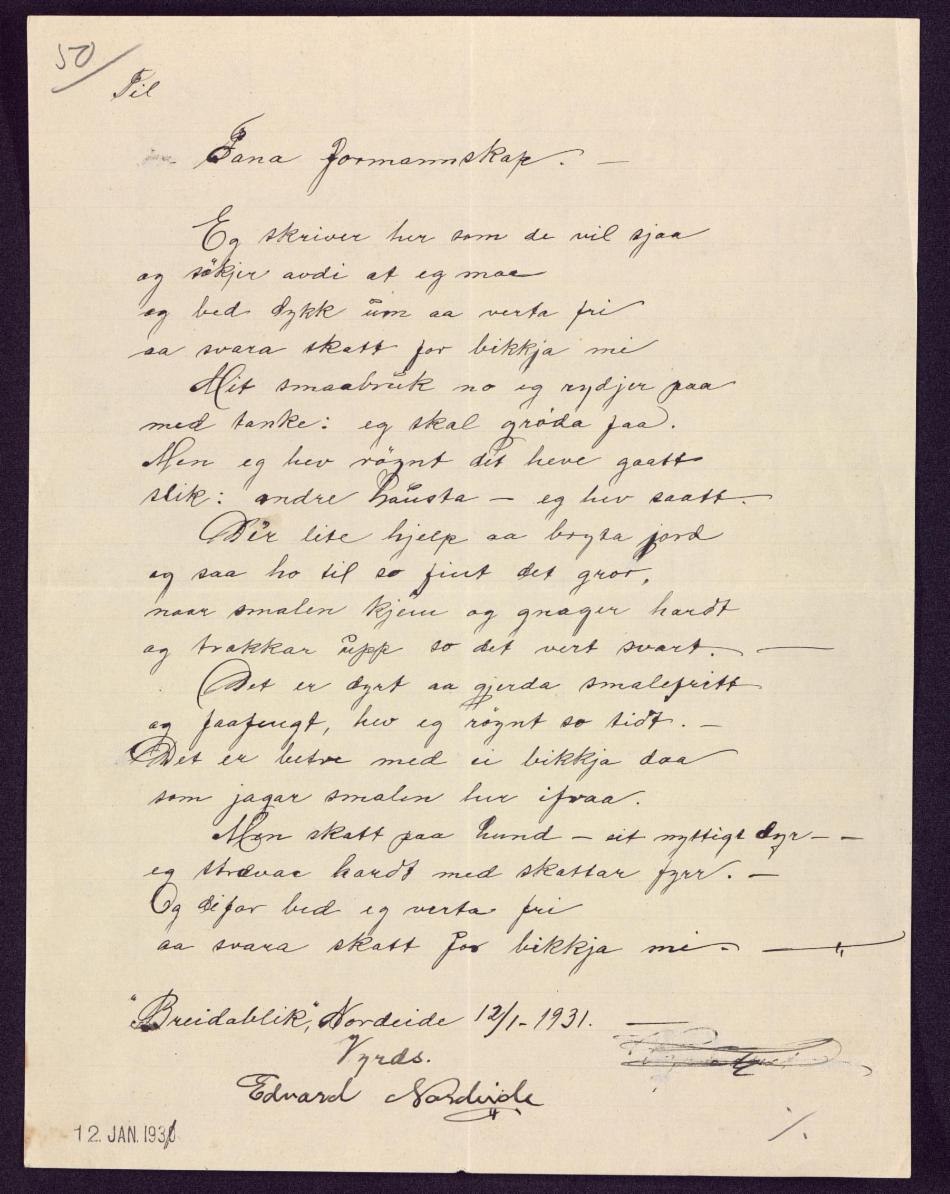 50/
Til
Fana formannskap. —
Eg skriver her som de vil sjaa
og søkjer avdi at eg maa
og bed dykk um aa verta fri
aa svara skatt for bikkja mi
Mit smaabruk no eg rydjer paa
med tanke: eg skal grøda faa.
Men eg hev røynt dit heve gaatt
slik: andre hausta — eg hev saatt.
D'er lite hjelp aa bryta jord
og saa ho til so fint det gror,
naar smalen kjem og gnager hardt
og trakkar upp so det vert svart. —
Det er dyrt aa gjerda smalefritt
og faafengt, hev eg røynt so tidt. —
Det er betre med ei bikkja daa
som jagar smalen her ifraa.
Men skatt paa hund — eit nyttigt dyr — —
eg strævar hardt med skattar fyrr. —
Og difor bed eg verta fri
aa svara skatt for bikkja mi. —
"Breidablik", Nordeide 12/1-1931. —
Vyrds.
Edvard Nordeide
12. JAN. 1931